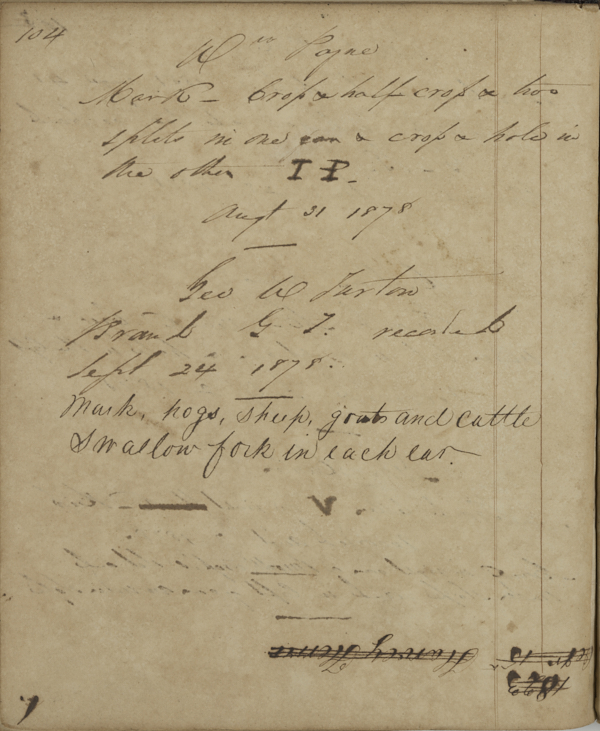 104
Wm Payne
Mark - Crop & half crop & two
splits in one ear & crop & hole in
the other I P.
Augt 31 1878
Geo W Turton
Brand G T. recorded
Sept 24 1878.
Mark, hogs, sheep, goats and cattle
Swallow fork in each ear.
Henry